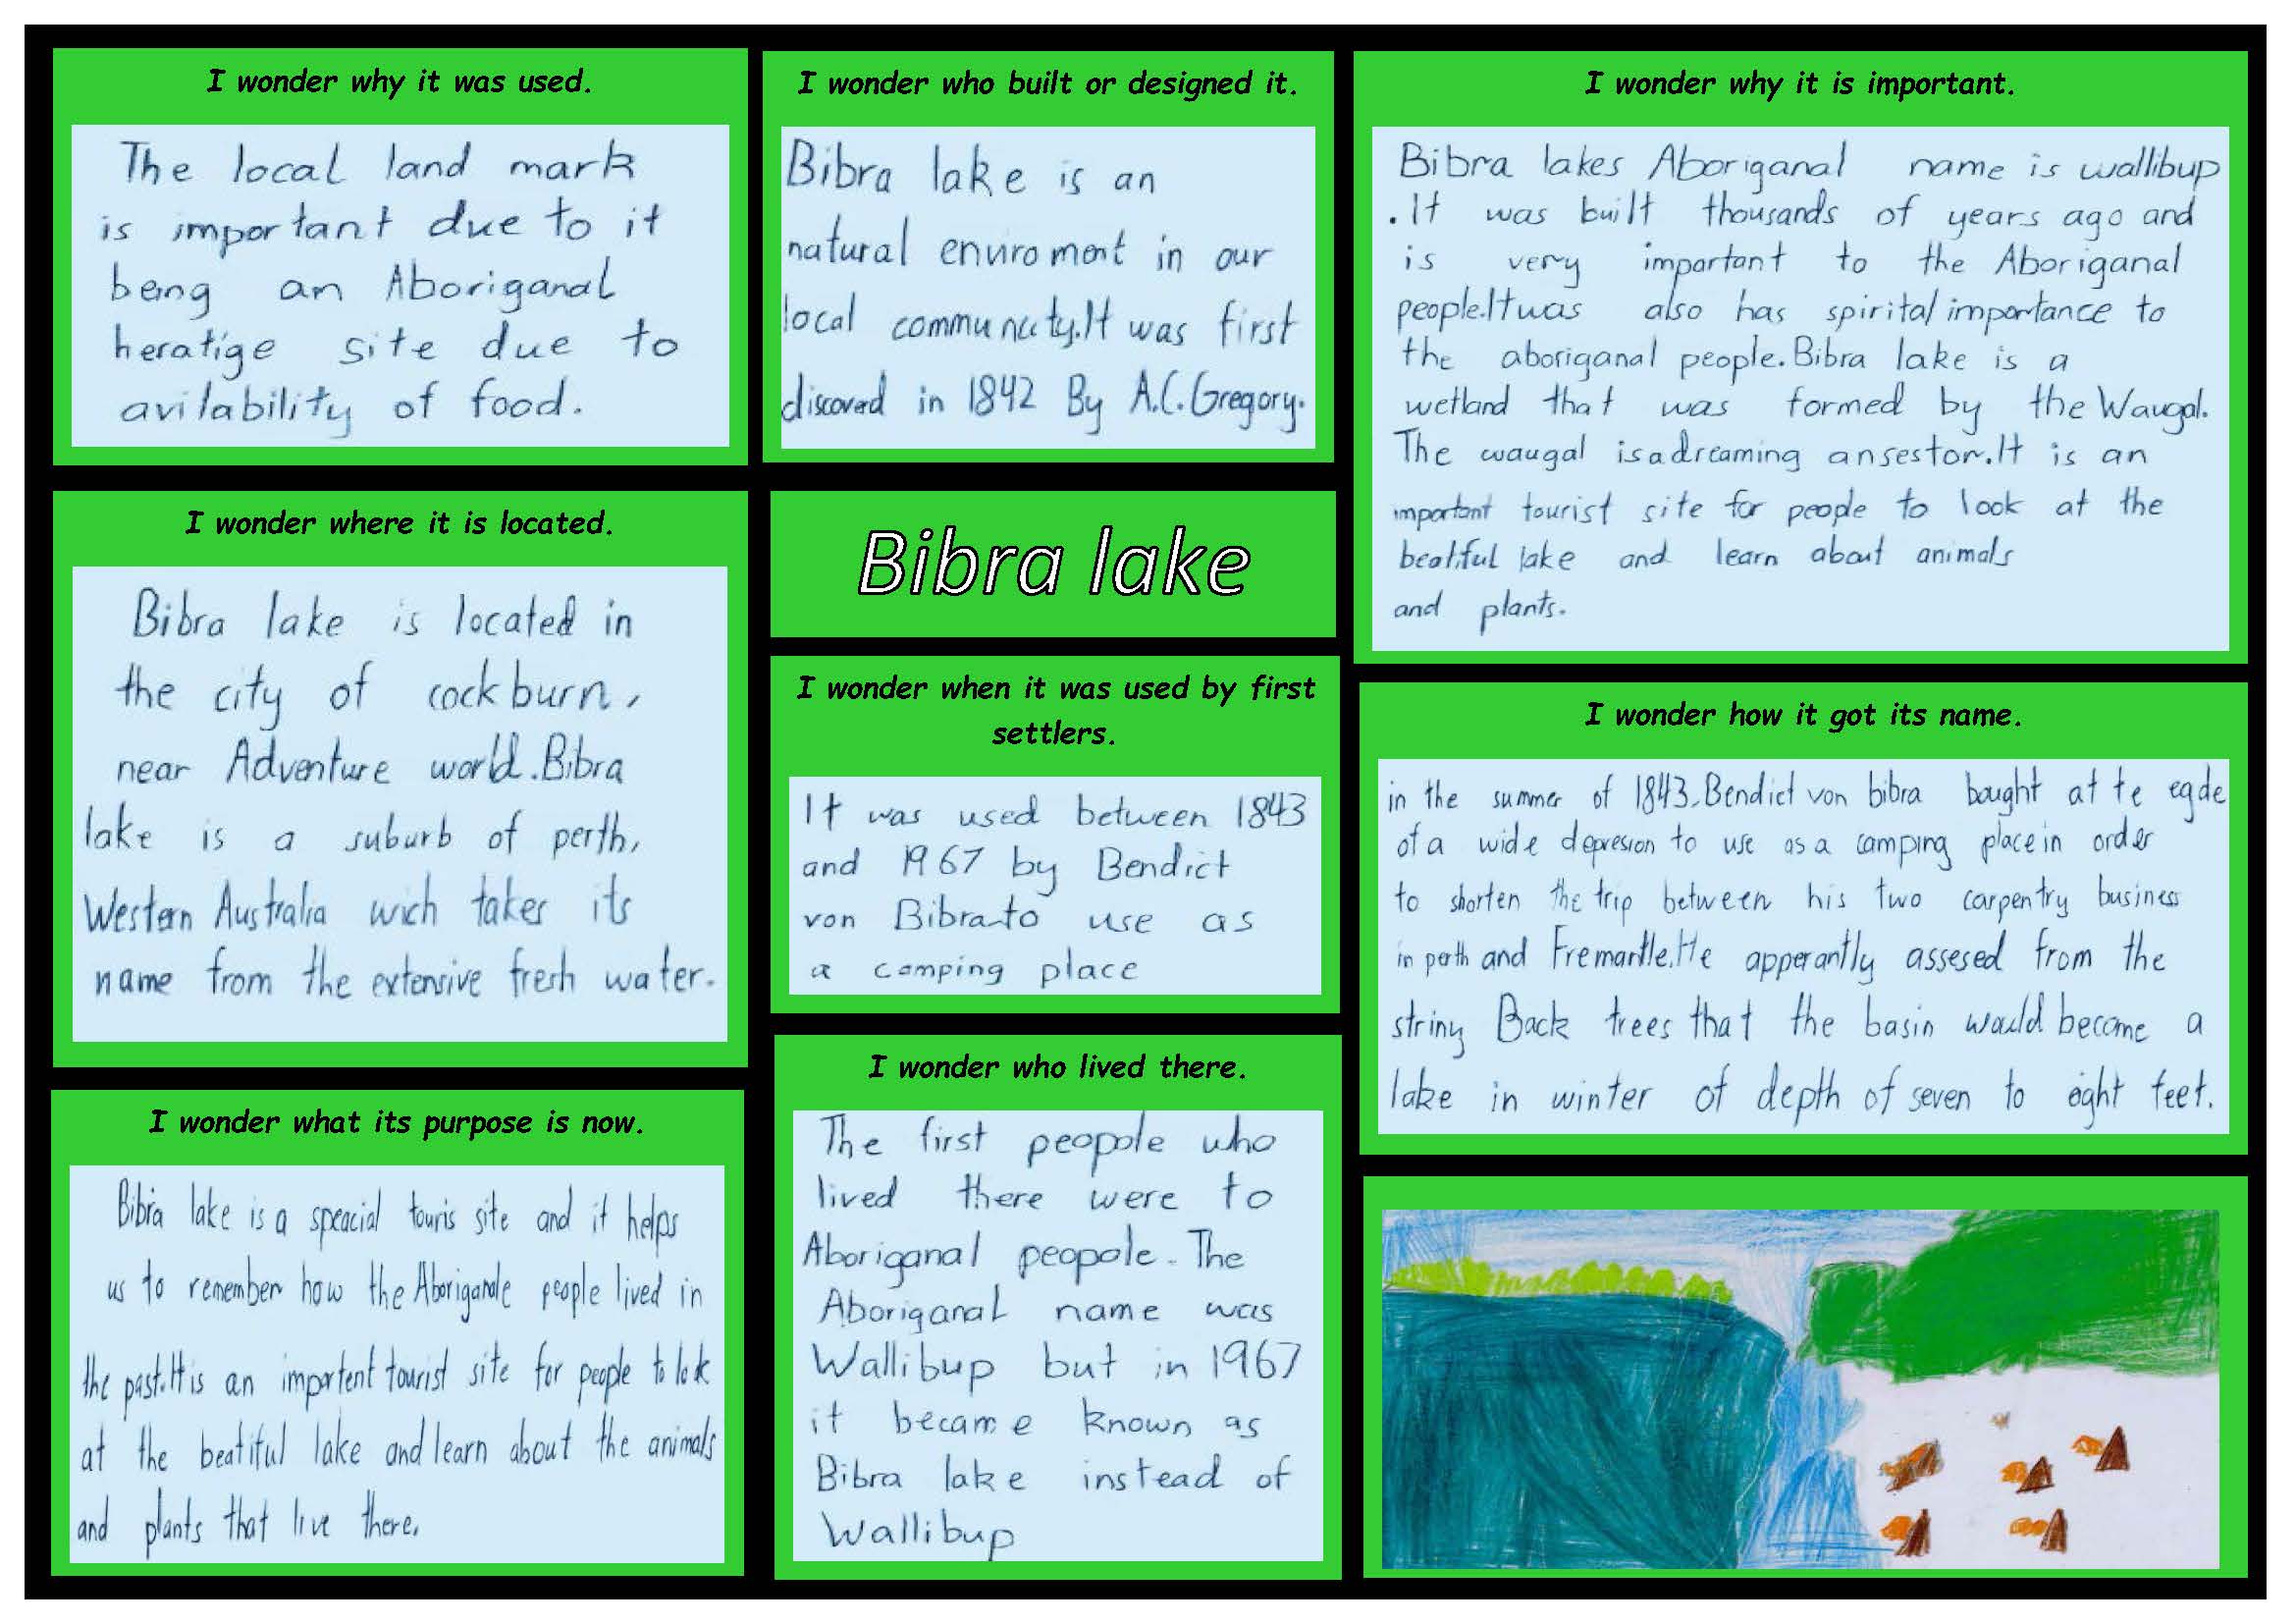 I wonder why it was used.
The local land mark
is important due to it
being an Aboriganal
heratige site due to
avilability of food.
I wonder who built or designed it.
Bibra lake is an
natural enviroment in our
local community.It was first
discoverd in 1842 By A.C.Gregory.
I wonder why it is important.
Bibra lakes Aboriganal name is wallibup
.It was built thousands of years ago and
is very important to the Aboriganal
people.Itwas also has spirital importance to
the aboriganal people.Bibra lake is a
wetland that was formed by the Waugal.
The waugal isadreaming ansestor.It is an
important tourist site for people to look at the
beatiful lake and learn about animals
and plants.
I wonder where it is located.
Bibra lake is located in
the city of cockburn,
near Adventure world.Bibra
lake is a suburb of perth,
Western Australia wich takes its
name from the extensive fresh water.
Bibra lake
I wonder when it was used by first
settlers.
It was used between 1843
and 1967 by Bendict
von Bibra to use as
a camping place
I wonder how it got its name.
in the summer of 1843.Bendict von bibra bought at te egde
of a wide depresion to use as a camping place in order
to shorten the trip between his two carpentry business
in perth and Fremantle.He apperantly assesed from the
striny Back trees that the basin would become a
lake in winter of depth of seven to eight feet.
I wonder what its purpose is now.
Bibra lake is a speacial touris site and it helps
us to remember how the Aboriganale people lived in
the past.It is an importent tourist site for people to lok
at the beatiful lake and learn about the animals
and plants that live there.
I wonder who lived there.
The first peopole who
lived there were to
Aboriganal peopole. The
Aboriganal name was
Wallibup but in 1967
it became known as
Bibra lake instead of
Wallibup